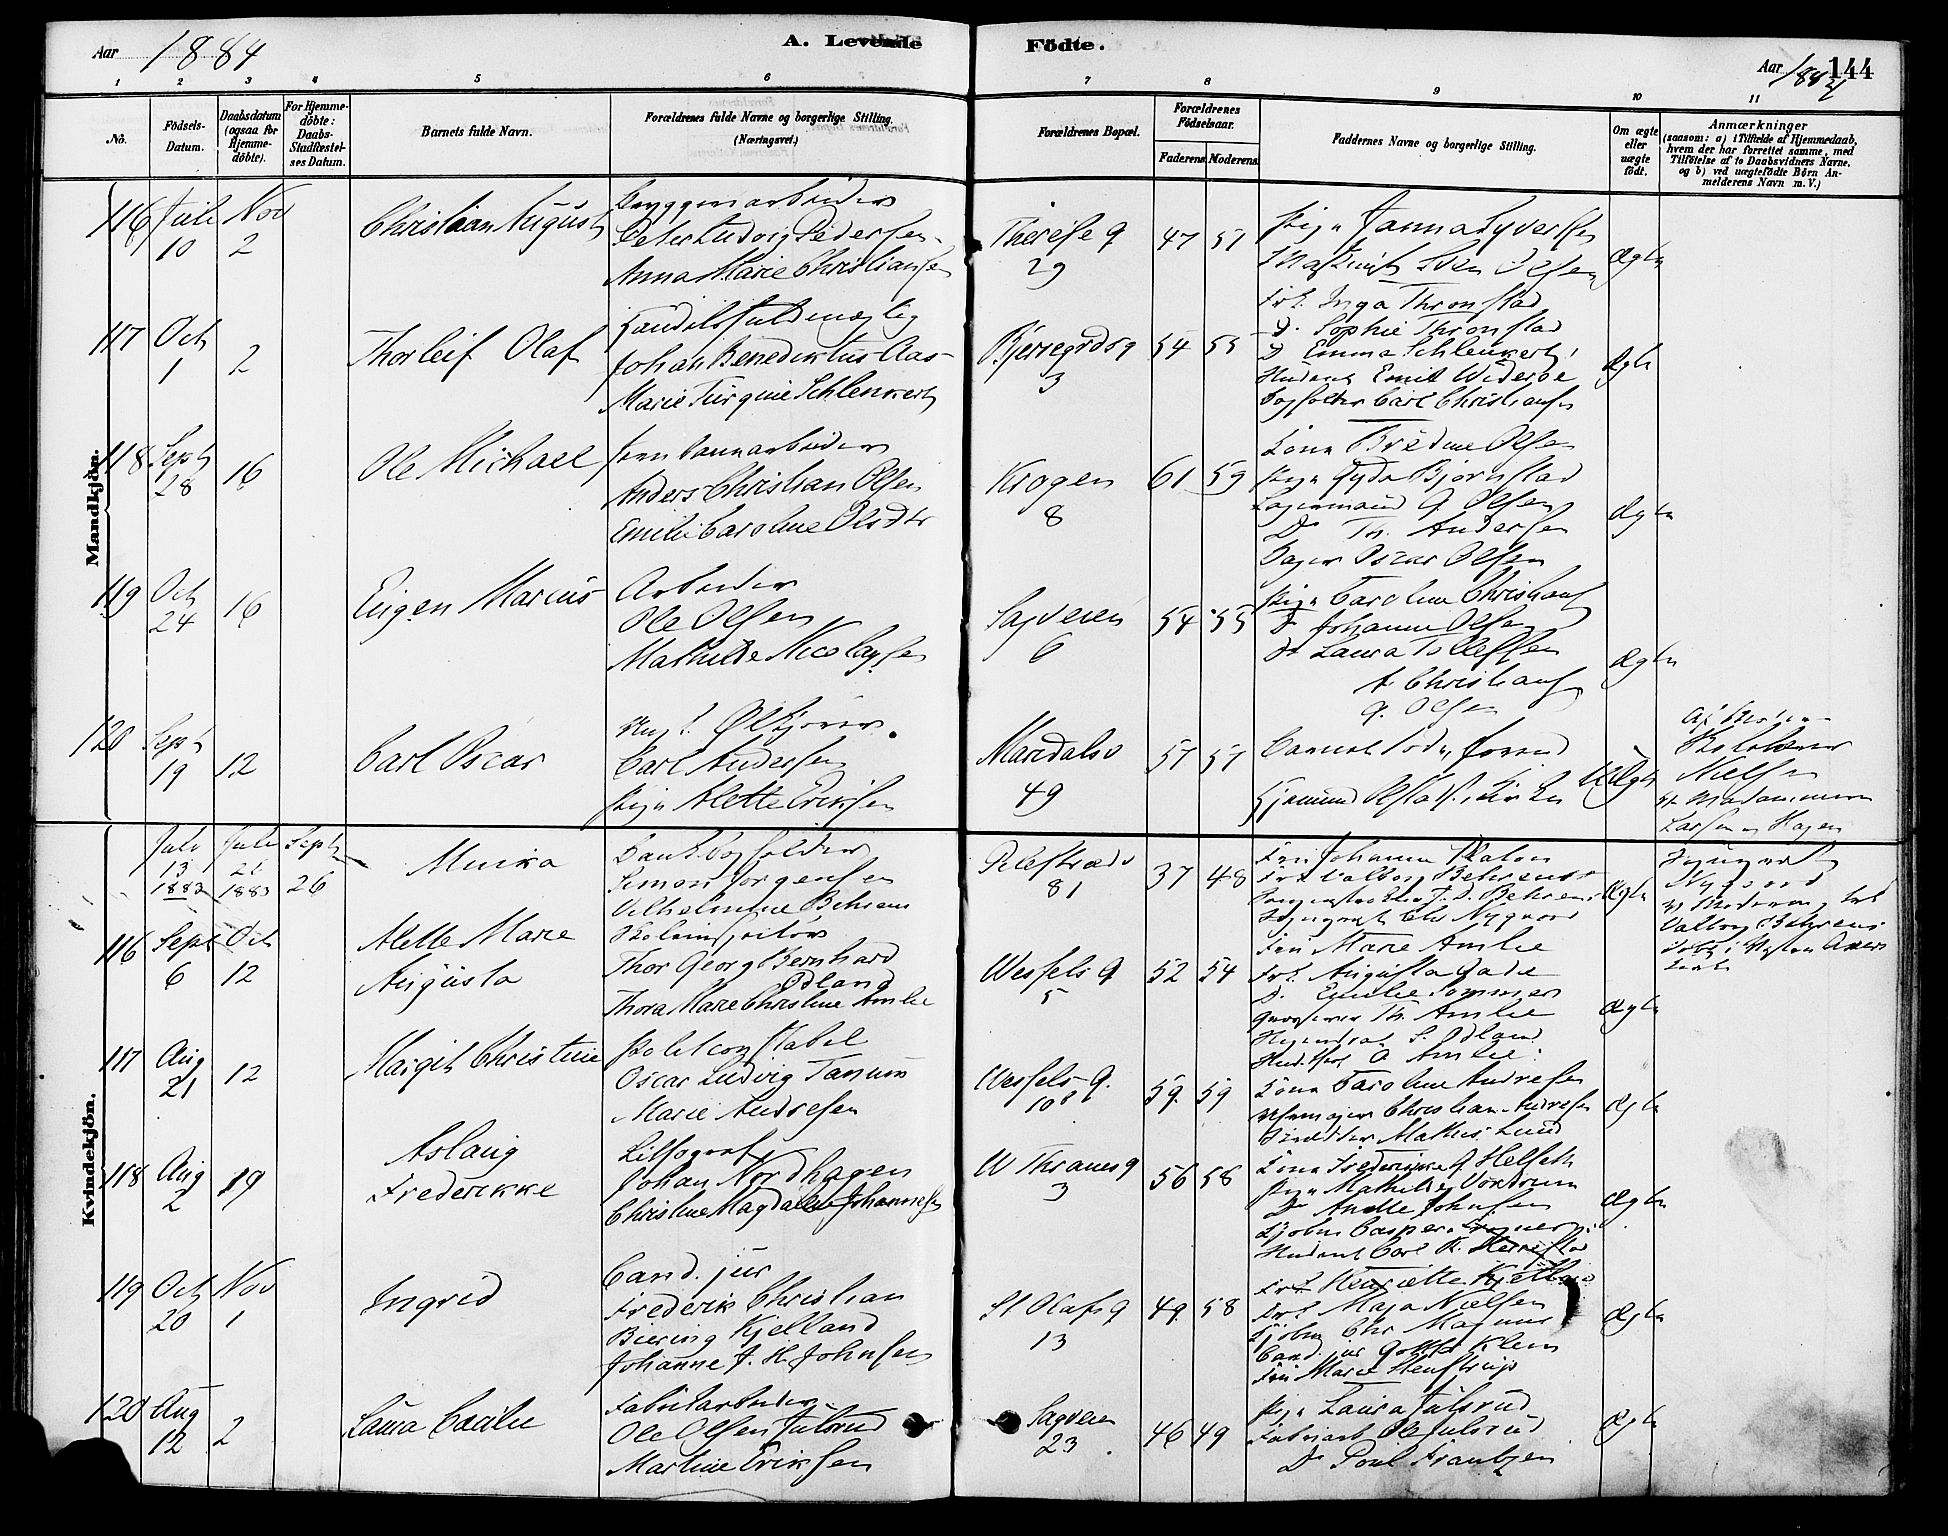 Aar 1884
A. Levende Födte.
Aar 1884
144
1 2 3 4 5 6 7 8 9 10 11
No.
Födsels-Datum.
Daabsdatum (ogsaa for Hjemme-döbte).
For Hjemme-döbte: Daabs-Stadfæstel-ses Datum.
Barnets fulde Navn.
Forældrenes fulde Navne og borgerlige Stilling. (Næringsvei.)
Forældrenes Bopæl.
Forældrenes Födselsaar.
Faderens. Moderens.
Faddernes Navne og borgerlige Stilling.
Om ægte eller uægte födt.
Anmærkninger
(saasom: a) i Tilfælde af Hjemmedaab,
hvem der har forrettet samme, med
Tilföielse af to Daabsvidners Navne,
og b) ved uægtefödte Börn An-
melderens Navn m. V.)
Mandkjön.
116 Juli 10 Nov 2
Christian August
Bryggeriarbeider
Peter Ludvig Pedersen
Anna Marie Christiansen
Therese g 29
47 57
Pige Janna Syversen
Maskinist Sven Olsen
Ægte
117 Oct 1 2
Thorleif Olaf
Handelsfuldmægtig
Johan Benediktus Aas
Marie Jürgine Schlenkert
Bjerregrdsg 3
54 55
Frk. Inga Thronstad
D. Sophie Thronstad
D Emma Schlenkert
Student Emil Wideröe
Bogholder Carl Christiansen
Ægte
118 Sept 28 16
Ole Michael
Jernbanearbeider
Anders Christian Olsen
Emilie Caroline Olsdtr
Krogen 8
61 59
Kona Tredine Olsen
Pige Gyda Bjørnstad
Lagermand G Olsen
D Th. Andersen
Bager Oscar Olsen
Ægte
119 Oct 24 16
Eugen Marius
Arbeider
Ole Olsen
Mathilde Nicolaysen
Sagveien 6
54 55
Pige Caroline Christians
D Johanne Olsen
D Laura Tollefsen
A Christians
G. Olsen
Ægte
120 Sept 19 12
Carl Oscar
Ungk. Ølkjører
Carl Andersen
Pige Alette Eriksen
Maridalsv 49
57 57
Uægte
Nielsen
Larsen og Hagen
Kvindekjön.
Juli 13 1883 Juli 21 1883 Sept 26
Bankbogholder
Simon Jørgensen
Vilhelmine Behrens
Pilestræde 81
37 48
Fru Johanne Platou
Frk Valborg Behrens
Ægte
Nygaard
Valborg Behrens
116 Sept 6 Oct 12
Alette Marie
Augusta
Skoleinspektör
Thor Georg Bernhard
Ødland
Thora Marie Christine Amlie
Wessels g 5
52 54
Fru Marie Amlie
Frk. Augusta Gade
D. Emilie Sommer
Grosserer Th. Amlie
S. Ødland
A Amlie
Ægte
117 Aug 21 12
Margit Christine
Politconstabel
Oscar Ludvig Tanum
Marie Andresen
Wessels g. 10
59 59
Kona Caroline Andresen
Christian Andresen
Snedker Mathis Lund
Ægte
118 Aug 2 19
Aslaug
Frederikke
Lithograf
Johan Nordhagen
Christine Magdalene Johannesen
W Thranesg 3
56 58
Kona Frederikke G Helseth
Pige Mathilde
D Anette Johnsen
Student Carl K.
Ægte
119 Oct 20 Nov 1
Ingrid
Cand. jur
Frederik Christian
Biering Kjelland
Johanne J. H. Johnsen
St Olafs g 13
49 58
Frk Henriette Kjelland
Frk Maja Nielsen
Chr Magnus
Cand. jur Klem
Fru Marie
Ægte
120 Aug 12 2
Laura Cecilie
Fabrikarbeider
Ole Olsen Julsrud
Martine Eriksen
Sagveien 23
46 49
Pige Laura Julsrud
Fabrikarb Ole Julsrud
D Poul Frantzen
Ægte